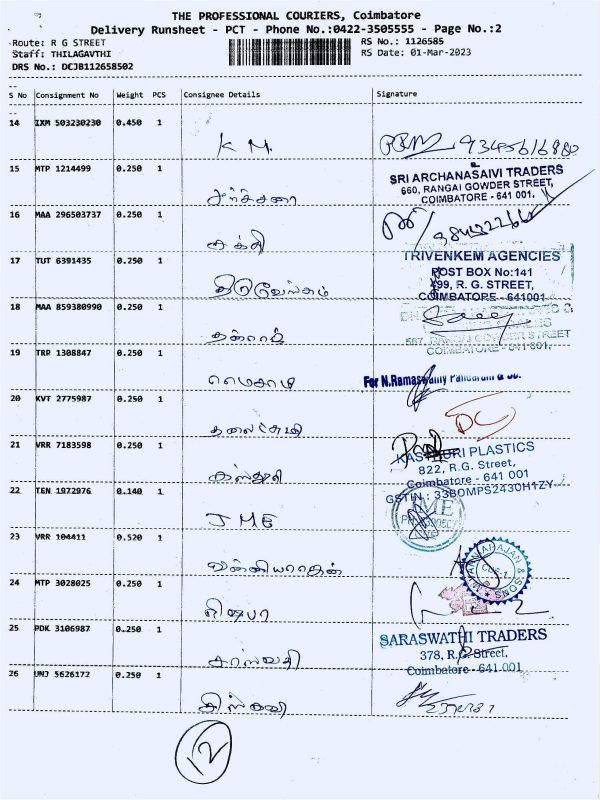 THE PROFESSIONAL COURIERS, Coimbatore
Delivery Runsheet - PCT - Phone No.:0422-3505555 - Page No.:2
Route: R G STREET
RS No.: 1126585
Staff: THILAGAVTHI
RS Date: 01-Mar-2023
DRS No.: DCJB112658502
S No Consignment No Weight PCS Consignee Details Signature
14 IXM 503230230 0.450 1
K M.
15 MTP 1214499 0.250 1
அர்ச்சனா
SRI ARCHANASAIVI TRADERS
660, RANGAI GOWDER STREET,
COIMBATORE - 641 001.
16 MAA 296503737 0.250 1
சக்தி
17 TUT 6391435 0.250 1
திருவேங்கம்
TRIVENKEM AGENCIES
POST BOX No:141
499, R. G. STREET,
COIMBATORE - 641001
18 MAA 859380990 0.250 1
தன்ராம்
587, RANGAI GOWDER STREET
COIMBATORE - 641 001.
19 TRR 1308847 0.250 1
For N.Ramaswamy
20 KVT 2775987 0.250 1
21 VRR 7183598 0.250 1
கஸ்தூரி
KASTHURI PLASTICS
822, R.G. Street,
Coimbatore - 641 001
GSTIN : 33BOMPS2430H1ZY
22 TEN 1972976 0.140 1
J M E
JME
23 VRR 104411 0.520 1
வன்னியராஜன்
& SONS
24 MTP 3028025 0.250 1
25 PDK 3106987 0.250 1
சரஸ்வதி
SARASWATHI TRADERS
378, R.G. Street,
Coimbatore - 641 001
26 UNJ 5626172 0.250 1
12